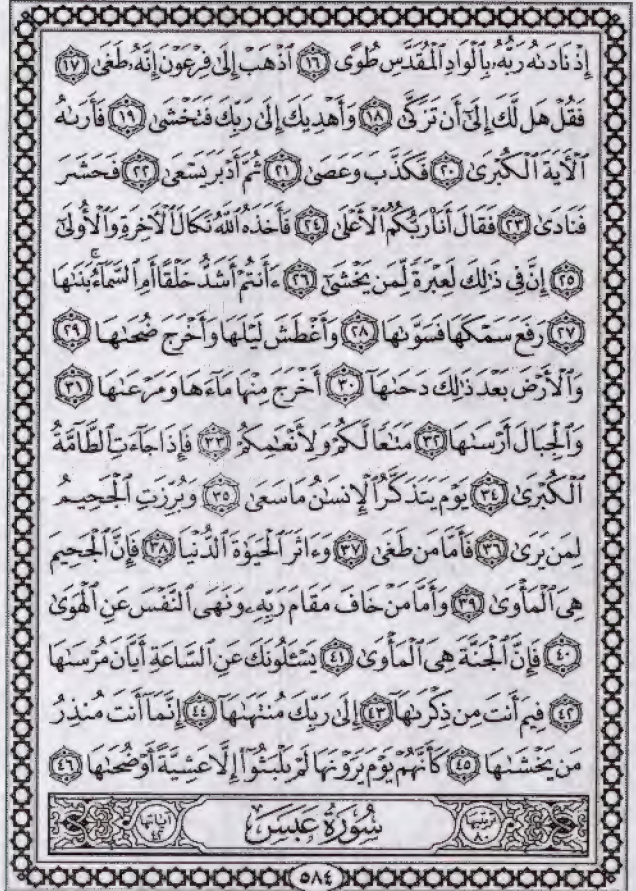 إِذْ نَادَىٰهُ رَبُّهُۥ بِٱلْوَادِ ٱلْمُقَدَّسِ طُوًى ١٦ ٱذْهَبْ إِلَىٰ فِرْعَوْنَ إِنَّهُۥ طَغَىٰ ١٧
فَقُلْ هَل لَّكَ إِلَىٰٓ أَن تَزَكَّىٰ ١٨ وَأَهْدِيَكَ إِلَىٰ رَبِّكَ فَتَخْشَىٰ ١٩ فَأَرَىٰهُ
ٱلْـَٔايَةَ ٱلْكُبْرَىٰ ٢٠ فَكَذَّبَ وَعَصَىٰ ٢١ ثُمَّ أَدْبَرَ يَسْعَىٰ ٢٢ فَحَشَرَ
فَنَادَىٰ ٢٣ فَقَالَ أَنَا۠ رَبُّكُمُ ٱلْأَعْلَىٰ ٢٤ فَأَخَذَهُ ٱللَّهُ نَكَالَ ٱلْـَٔاخِرَةِ وَٱلْأُولَىٰٓ
٢٥ إِنَّ فِى ذَٰلِكَ لَعِبْرَةً لِّمَن يَخْشَىٰٓ ٢٦ ءَأَنتُمْ أَشَدُّ خَلْقًا أَمِ ٱلسَّمَآءُ ۚ بَنَىٰهَا
٢٧ رَفَعَ سَمْكَهَا فَسَوَّىٰهَا ٢٨ وَأَغْطَشَ لَيْلَهَا وَأَخْرَجَ ضُحَىٰهَا ٢٩
وَٱلْأَرْضَ بَعْدَ ذَٰلِكَ دَحَىٰهَآ ٣٠ أَخْرَجَ مِنْهَا مَآءَهَا وَمَرْعَىٰهَا ٣١
وَٱلْجِبَالَ أَرْسَىٰهَا ٣٢ مَتَـٰعًا لَّكُمْ وَلِأَنْعَـٰمِكُمْ ٣٣ فَإِذَا جَآءَتِ ٱلطَّآمَّةُ
ٱلْكُبْرَىٰ ٣٤ يَوْمَ يَتَذَكَّرُ ٱلْإِنسَـٰنُ مَا سَعَىٰ ٣٥ وَبُرِّزَتِ ٱلْجَحِيمُ
لِمَن يَرَىٰ ٣٦ فَأَمَّا مَن طَغَىٰ ٣٧ وَءَاثَرَ ٱلْحَيَوٰةَ ٱلدُّنْيَا ٣٨ فَإِنَّ ٱلْجَحِيمَ
هِىَ ٱلْمَأْوَىٰ ٣٩ وَأَمَّا مَنْ خَافَ مَقَامَ رَبِّهِۦ وَنَهَى ٱلنَّفْسَ عَنِ ٱلْهَوَىٰ
٤٠ فَإِنَّ ٱلْجَنَّةَ هِىَ ٱلْمَأْوَىٰ ٤١ يَسْـَٔلُونَكَ عَنِ ٱلسَّاعَةِ أَيَّانَ مُرْسَىٰهَا
٤٢ فِيمَ أَنتَ مِن ذِكْرَىٰهَآ ٤٣ إِلَىٰ رَبِّكَ مُنتَهَىٰهَآ ٤٤ إِنَّمَآ أَنتَ مُنذِرُ
مَن يَخْشَىٰهَا ٤٥ كَأَنَّهُمْ يَوْمَ يَرَوْنَهَا لَمْ يَلْبَثُوٓا۟ إِلَّا عَشِيَّةً أَوْ ضُحَىٰهَا ٤٦
ترتيبها ٨٠ سُورَةُ عَبَسَ آياتها ٤٢
٥٨٤